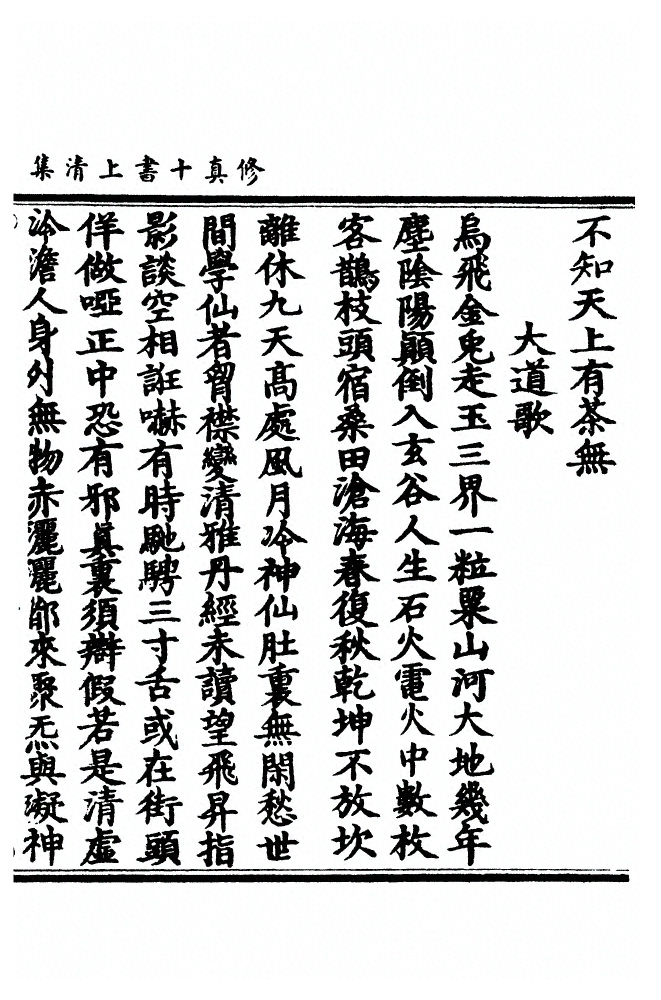 修真十書上清集
不知天上有茶無
大道歌
烏飛金兎走玉三界一粒粟山河大地幾年
塵陰陽顚倒入玄谷人生石火電火中數枚
客鵲枝頭宿桑田滄海春復秋乾坤不放坎
離休九天高處風月冷神仙肚裏無閑愁世
間學仙者胷襟變清雅丹經未讀望飛昇指
影談空相誑嚇有時馳騁三寸舌或在街頭
佯做啞正中恐有邪眞裏須辯假若是清虛
冷澹人身外無物赤灑灑都來聚炁與凝神